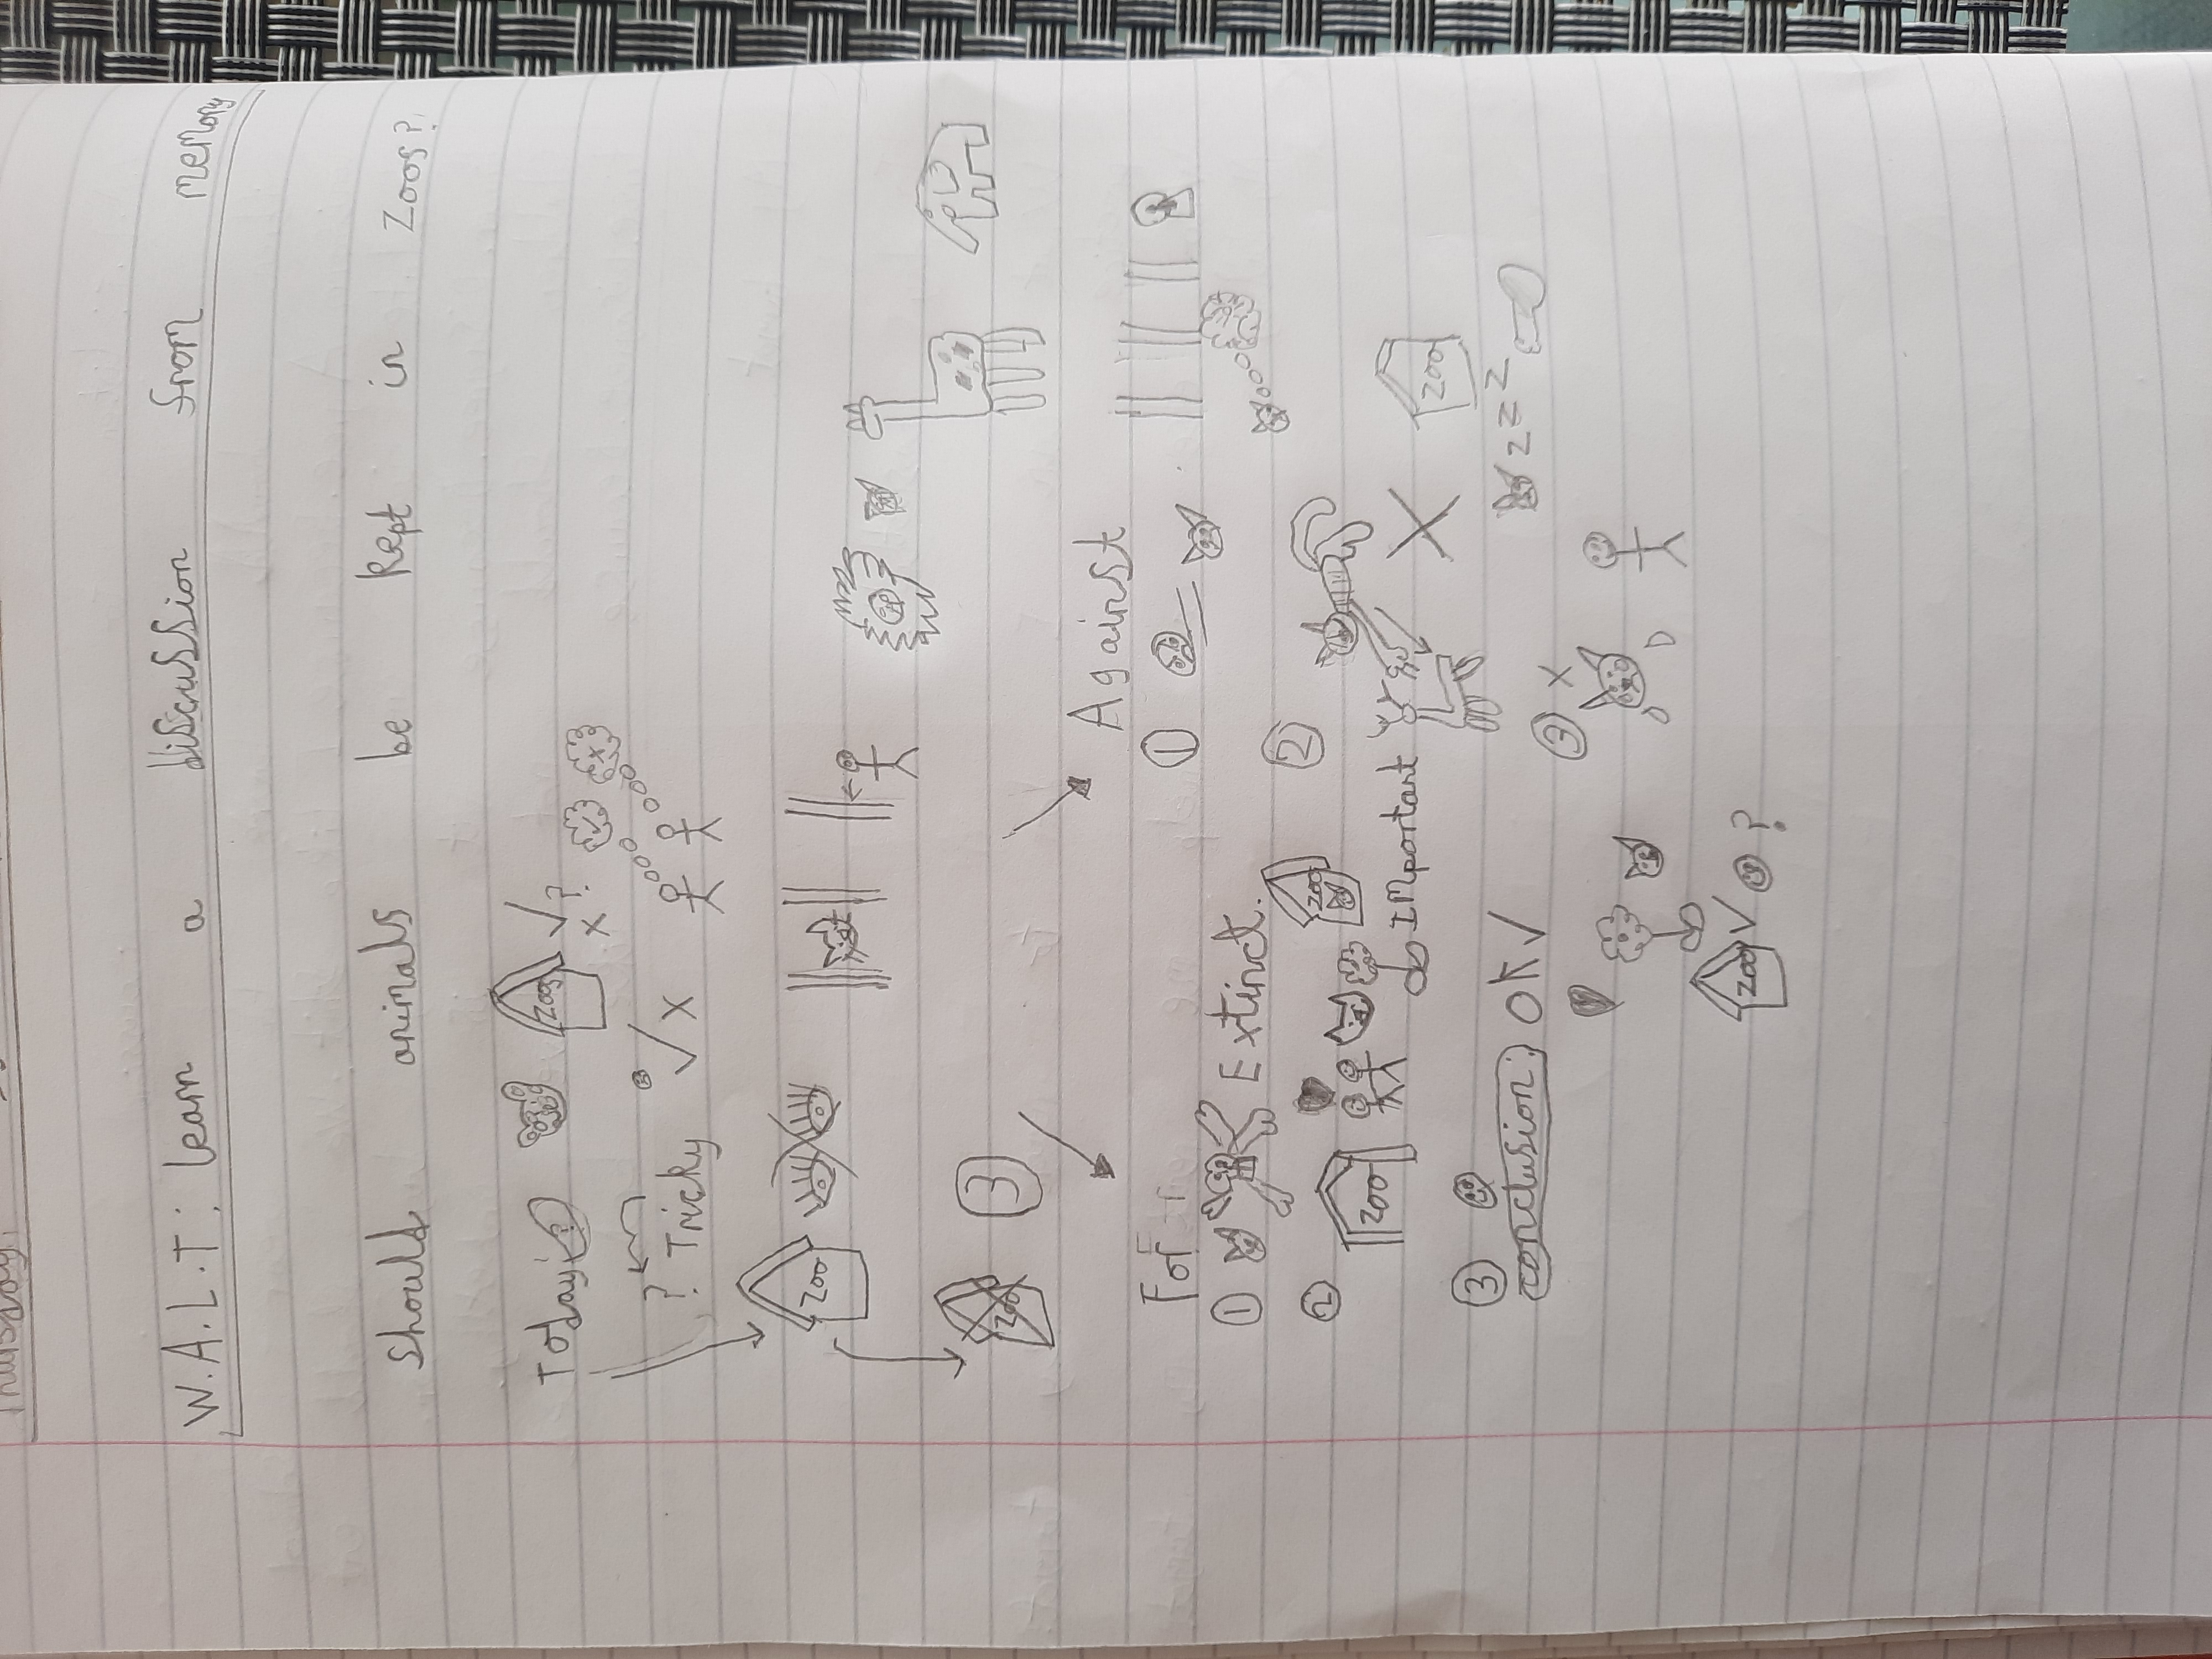 Thursday
W.A.L.T: learn a discussion from memory
Should animals be kept in Zoos?
Today ? Zoos ✓ x ? ✓ x
? Tricky ✓ x
Zoo
Zoo 3
For Against
① Extinct. ①
② Zoo Zoo IMportant ② X Zoo
zzz
③ OK ✓ ③ x
conclusion:
Zoo ✓ ?